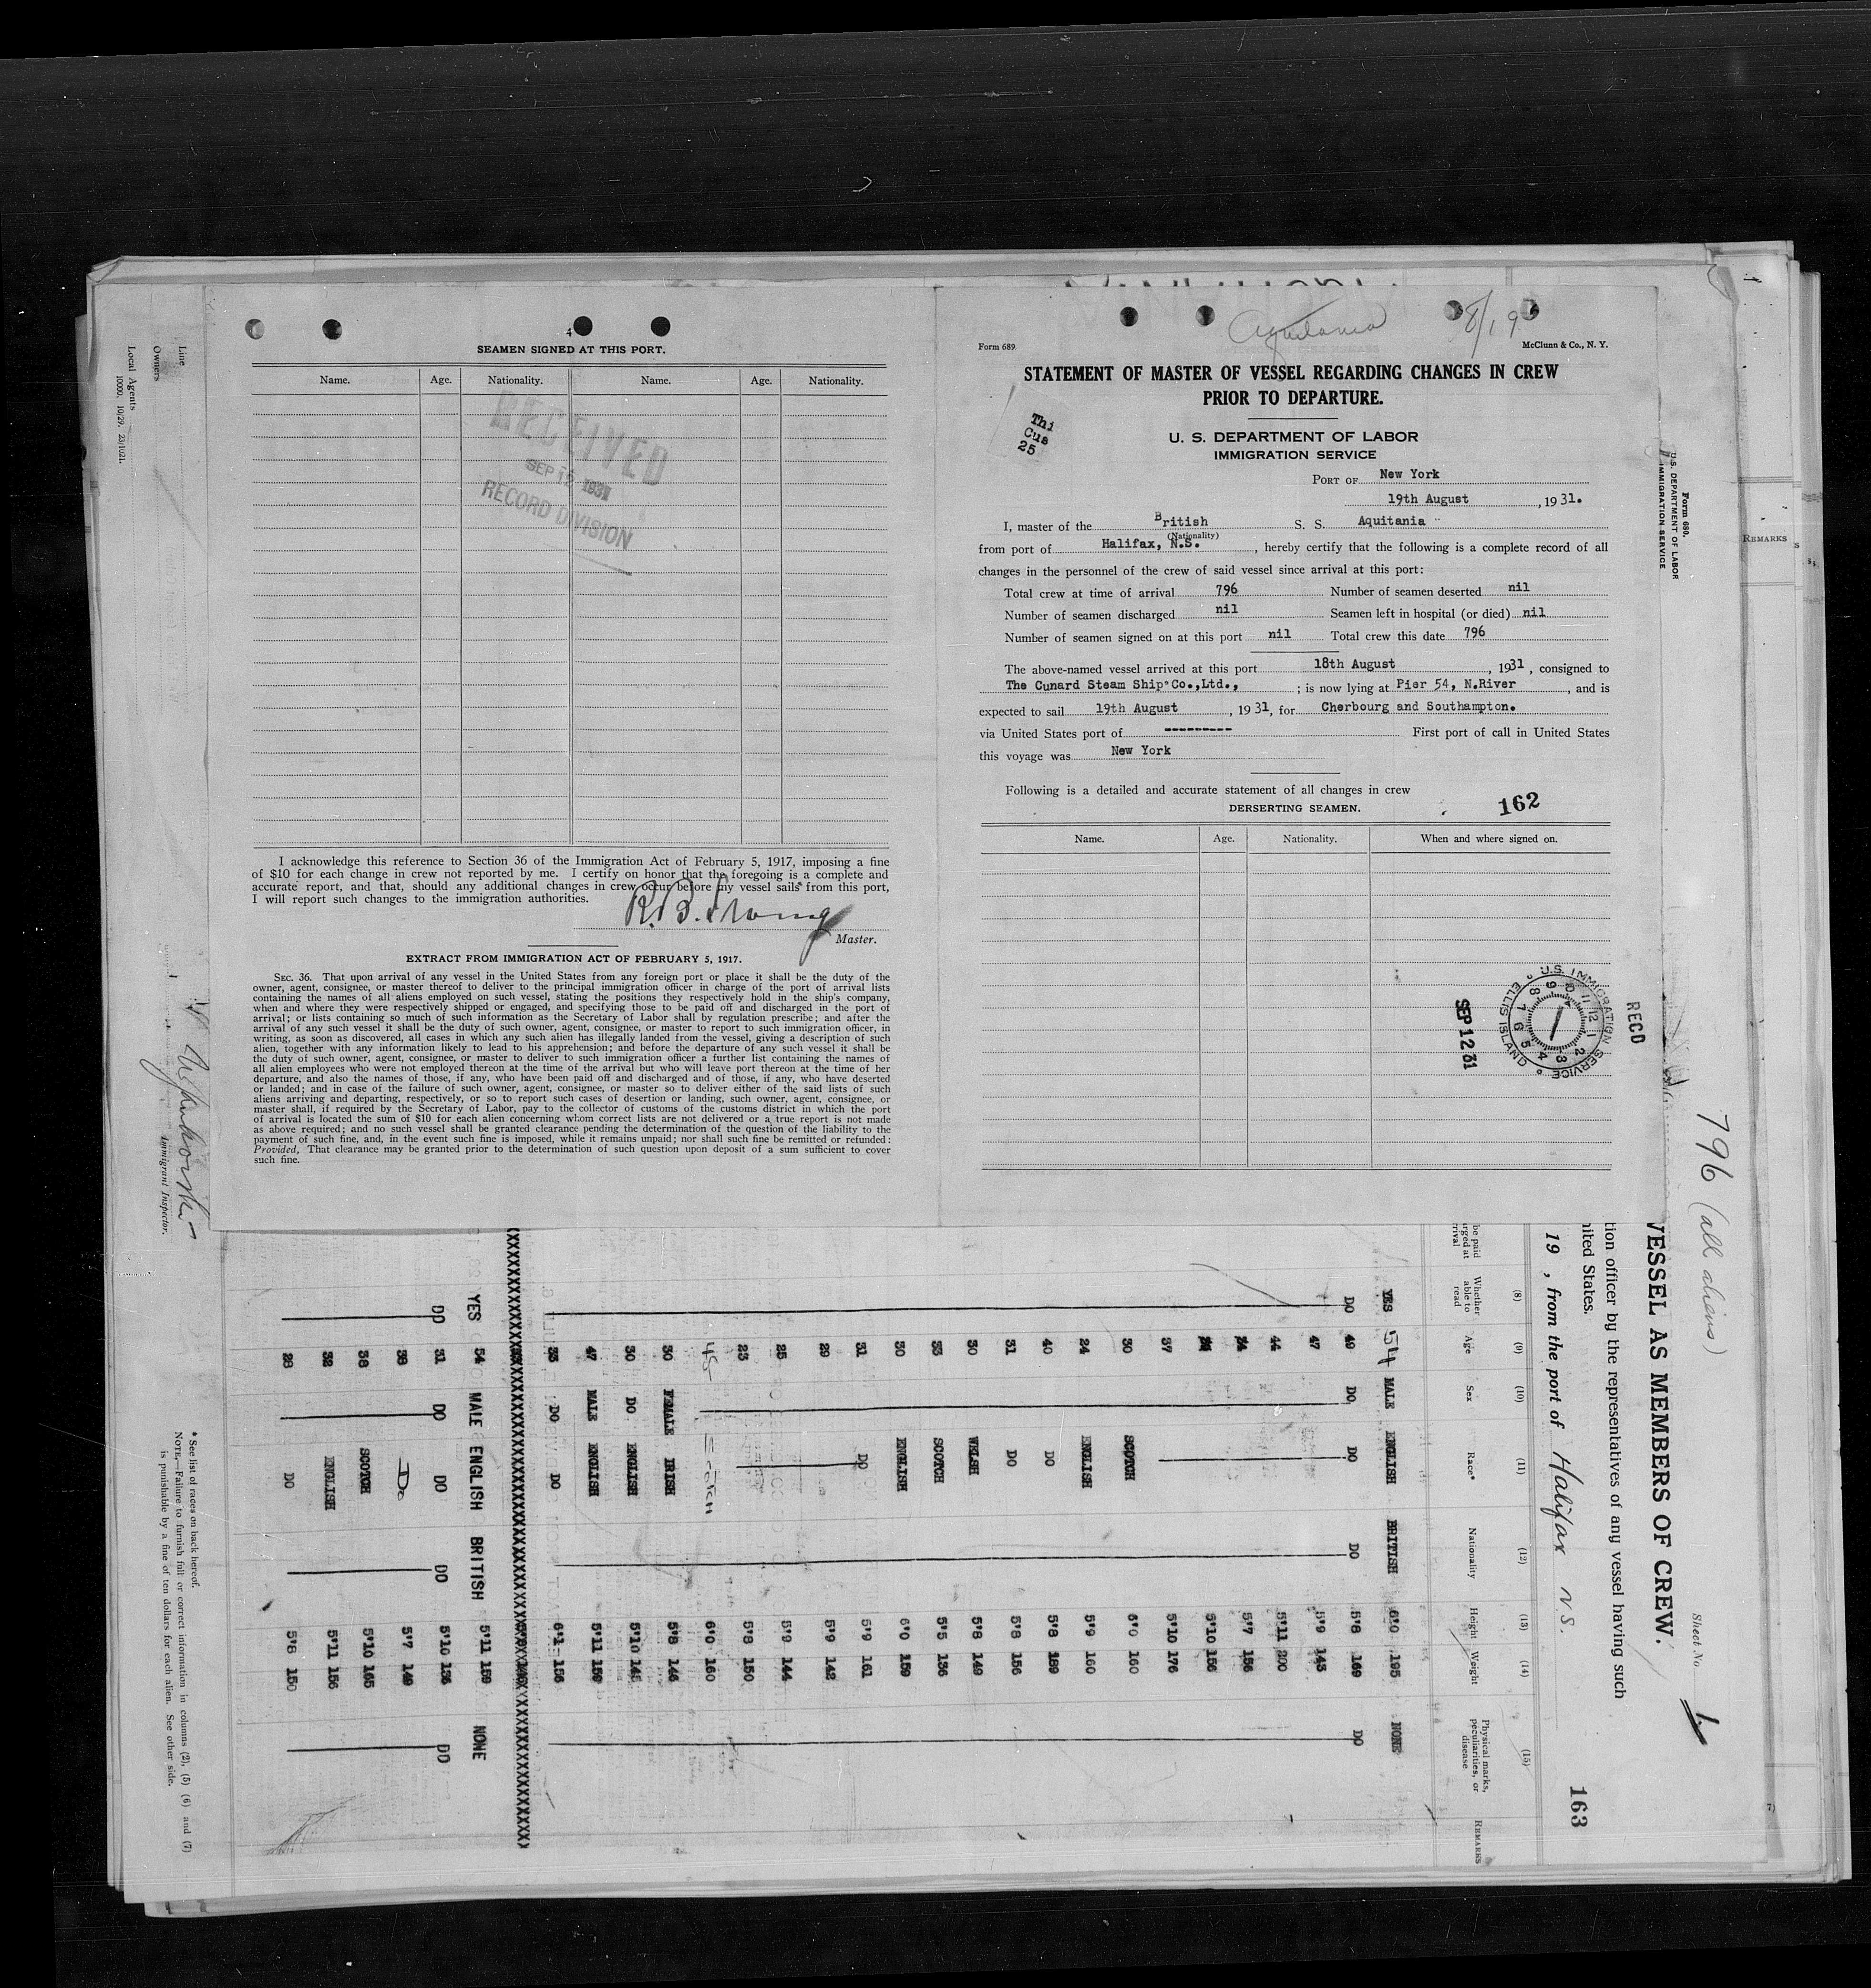 4
SEAMEN SIGNED AT THIS PORT.
Name. Age. Nationality. Name. Age. Nationality.
RECEIVED
SEP 12 1931
RECORD DIVISION
I acknowledge this reference to Section 36 of the Immigration Act of February 5, 1917, imposing a fine
of $10 for each change in crew not reported by me. I certify on honor that the foregoing is a complete and
accurate report, and that, should any additional changes in crew occur before my vessel sails from this port,
I will report such changes to the immigration authorities.
Master.
EXTRACT FROM IMMIGRATION ACT OF FEBRUARY 5, 1917.
SEC. 36. That upon arrival of any vessel in the United States from any foreign port or place it shall be the duty of the
owner, agent, consignee, or master thereof to deliver to the principal immigration officer in charge of the port of arrival lists
containing the names of all aliens employed on such vessel, stating the positions they respectively hold in the ship's company,
when and where they were respectively shipped or engaged, and specifying those to be paid off and discharged in the port of
arrival; or lists containing so much of such information as the Secretary of Labor shall by regulation prescribe; and after the
arrival of any such vessel it shall be the duty of such owner, agent, consignee, or master to report to such immigration officer, in
writing, as soon as discovered, all cases in which any such alien has illegally landed from the vessel, giving a description of such
alien, together with any information likely to lead to his apprehension; and before the departure of any such vessel it shall be
the duty of such owner, agent, consignee, or master to deliver to such immigration officer a further list containing the names of
all alien employees who were not employed thereon at the time of the arrival but who will leave port thereon at the time of her
departure, and also the names of those, if any, who have been paid off and discharged and of those, if any, who have deserted
or landed; and in case of the failure of such owner, agent, consignee, or master so to deliver either of the said lists of such
aliens arriving and departing, respectively, or so to report such cases of desertion or landing, such owner, agent, consignee, or
master shall, if required by the Secretary of Labor, pay to the collector of customs of the customs district in which the port
of arrival is located the sum of $10 for each alien concerning whom correct lists are not delivered or a true report is not made
as above required; and no such vessel shall be granted clearance pending the determination of the question of the liability to the
payment of such fine, and, in the event such fine is imposed, while it remains unpaid; nor shall such fine be remitted or refunded:
Provided, That clearance may be granted prior to the determination of such question upon deposit of a sum sufficient to cover
such fine.
Aquitania 8/19
Form 689. McClunn & Co., N. Y.
STATEMENT OF MASTER OF VESSEL REGARDING CHANGES IN CREW
PRIOR TO DEPARTURE.
Thi
Cus
25
U. S. DEPARTMENT OF LABOR
IMMIGRATION SERVICE
PORT OF New York
19th August, 1931.
I, master of the British S. S. Aquitania
(Nationality)
from port of Halifax, N.S., hereby certify that the following is a complete record of all
changes in the personnel of the crew of said vessel since arrival at this port:
Total crew at time of arrival 796 Number of seamen deserted nil
Number of seamen discharged nil Seamen left in hospital (or died) nil
Number of seamen signed on at this port nil Total crew this date 796
The above-named vessel arrived at this port 18th August, 1931, consigned to
The Cunard Steam Ship Co.,Ltd., ; is now lying at Pier 54, N.River, and is
expected to sail 19th August, 1931, for Cherbourg and Southampton.
via United States port of --------- First port of call in United States
this voyage was New York
Following is a detailed and accurate statement of all changes in crew
DERSERTING SEAMEN. 162
Name. Age. Nationality. When and where signed on.
RECD
U.S. IMMIGRATION SERVICE
ELLIS ISLAND
SEP 12 31
Form 689.
U.S. DEPARTMENT OF LABOR
IMMIGRATION SERVICE
REMARKS
796 (all aliens)
Sheet No. 1.
VESSEL AS MEMBERS OF CREW.
tion officer by the representatives of any vessel having such
nited States.
19 , from the port of Halifax N.S. 163
(8) (9) (10) (11) (12) (13) (14) (15)
be paid
rged at
rrival
Whether able to read Age Sex Race* Nationality Height Weight Physical marks, peculiarities, or disease REMARKS
YES 54 MALE ENGLISH BRITISH 6'0 195 NONE
DO 49 DO DO DO 5'8 169 DO
47 5'9 143
44 5'11 200
5'7 156
5'10 156
37 5'10 176
30 SCOTCH 6'0 160
24 ENGLISH 5'9 160
40 DO 5'8 189
31 DO 5'8 156
30 WELSH 5'8 149
33 SCOTCH 5'5 136
30 ENGLISH 6'0 159
31 DO 5'9 161
29 5'9 142
25 5'9 144
23 5'8 150
45 SCOTCH 6'0 160
30 FEMALE IRISH 5'8 146
30 DO ENGLISH 5'10 145
47 MALE ENGLISH 5'11 159
33 DO DO 6'1 156
YES 54 MALE ENGLISH BRITISH 5'11 159 NONE
DO 31 DO DO DO 5'10 136 DO
38 Do 5'7 149
38 SCOTCH 5'10 165
32 ENGLISH 5'11 156
28 DO 5'8 150
* See list of races on back hereof.
NOTE.—Failure to furnish full or correct information in columns (2), (5) (6) and (7)
is punishable by a fine of ten dollars for each alien. See other side.
Immigrant Inspector.
Line
Owners
Local Agents
10000, 10/29. 23/1021.